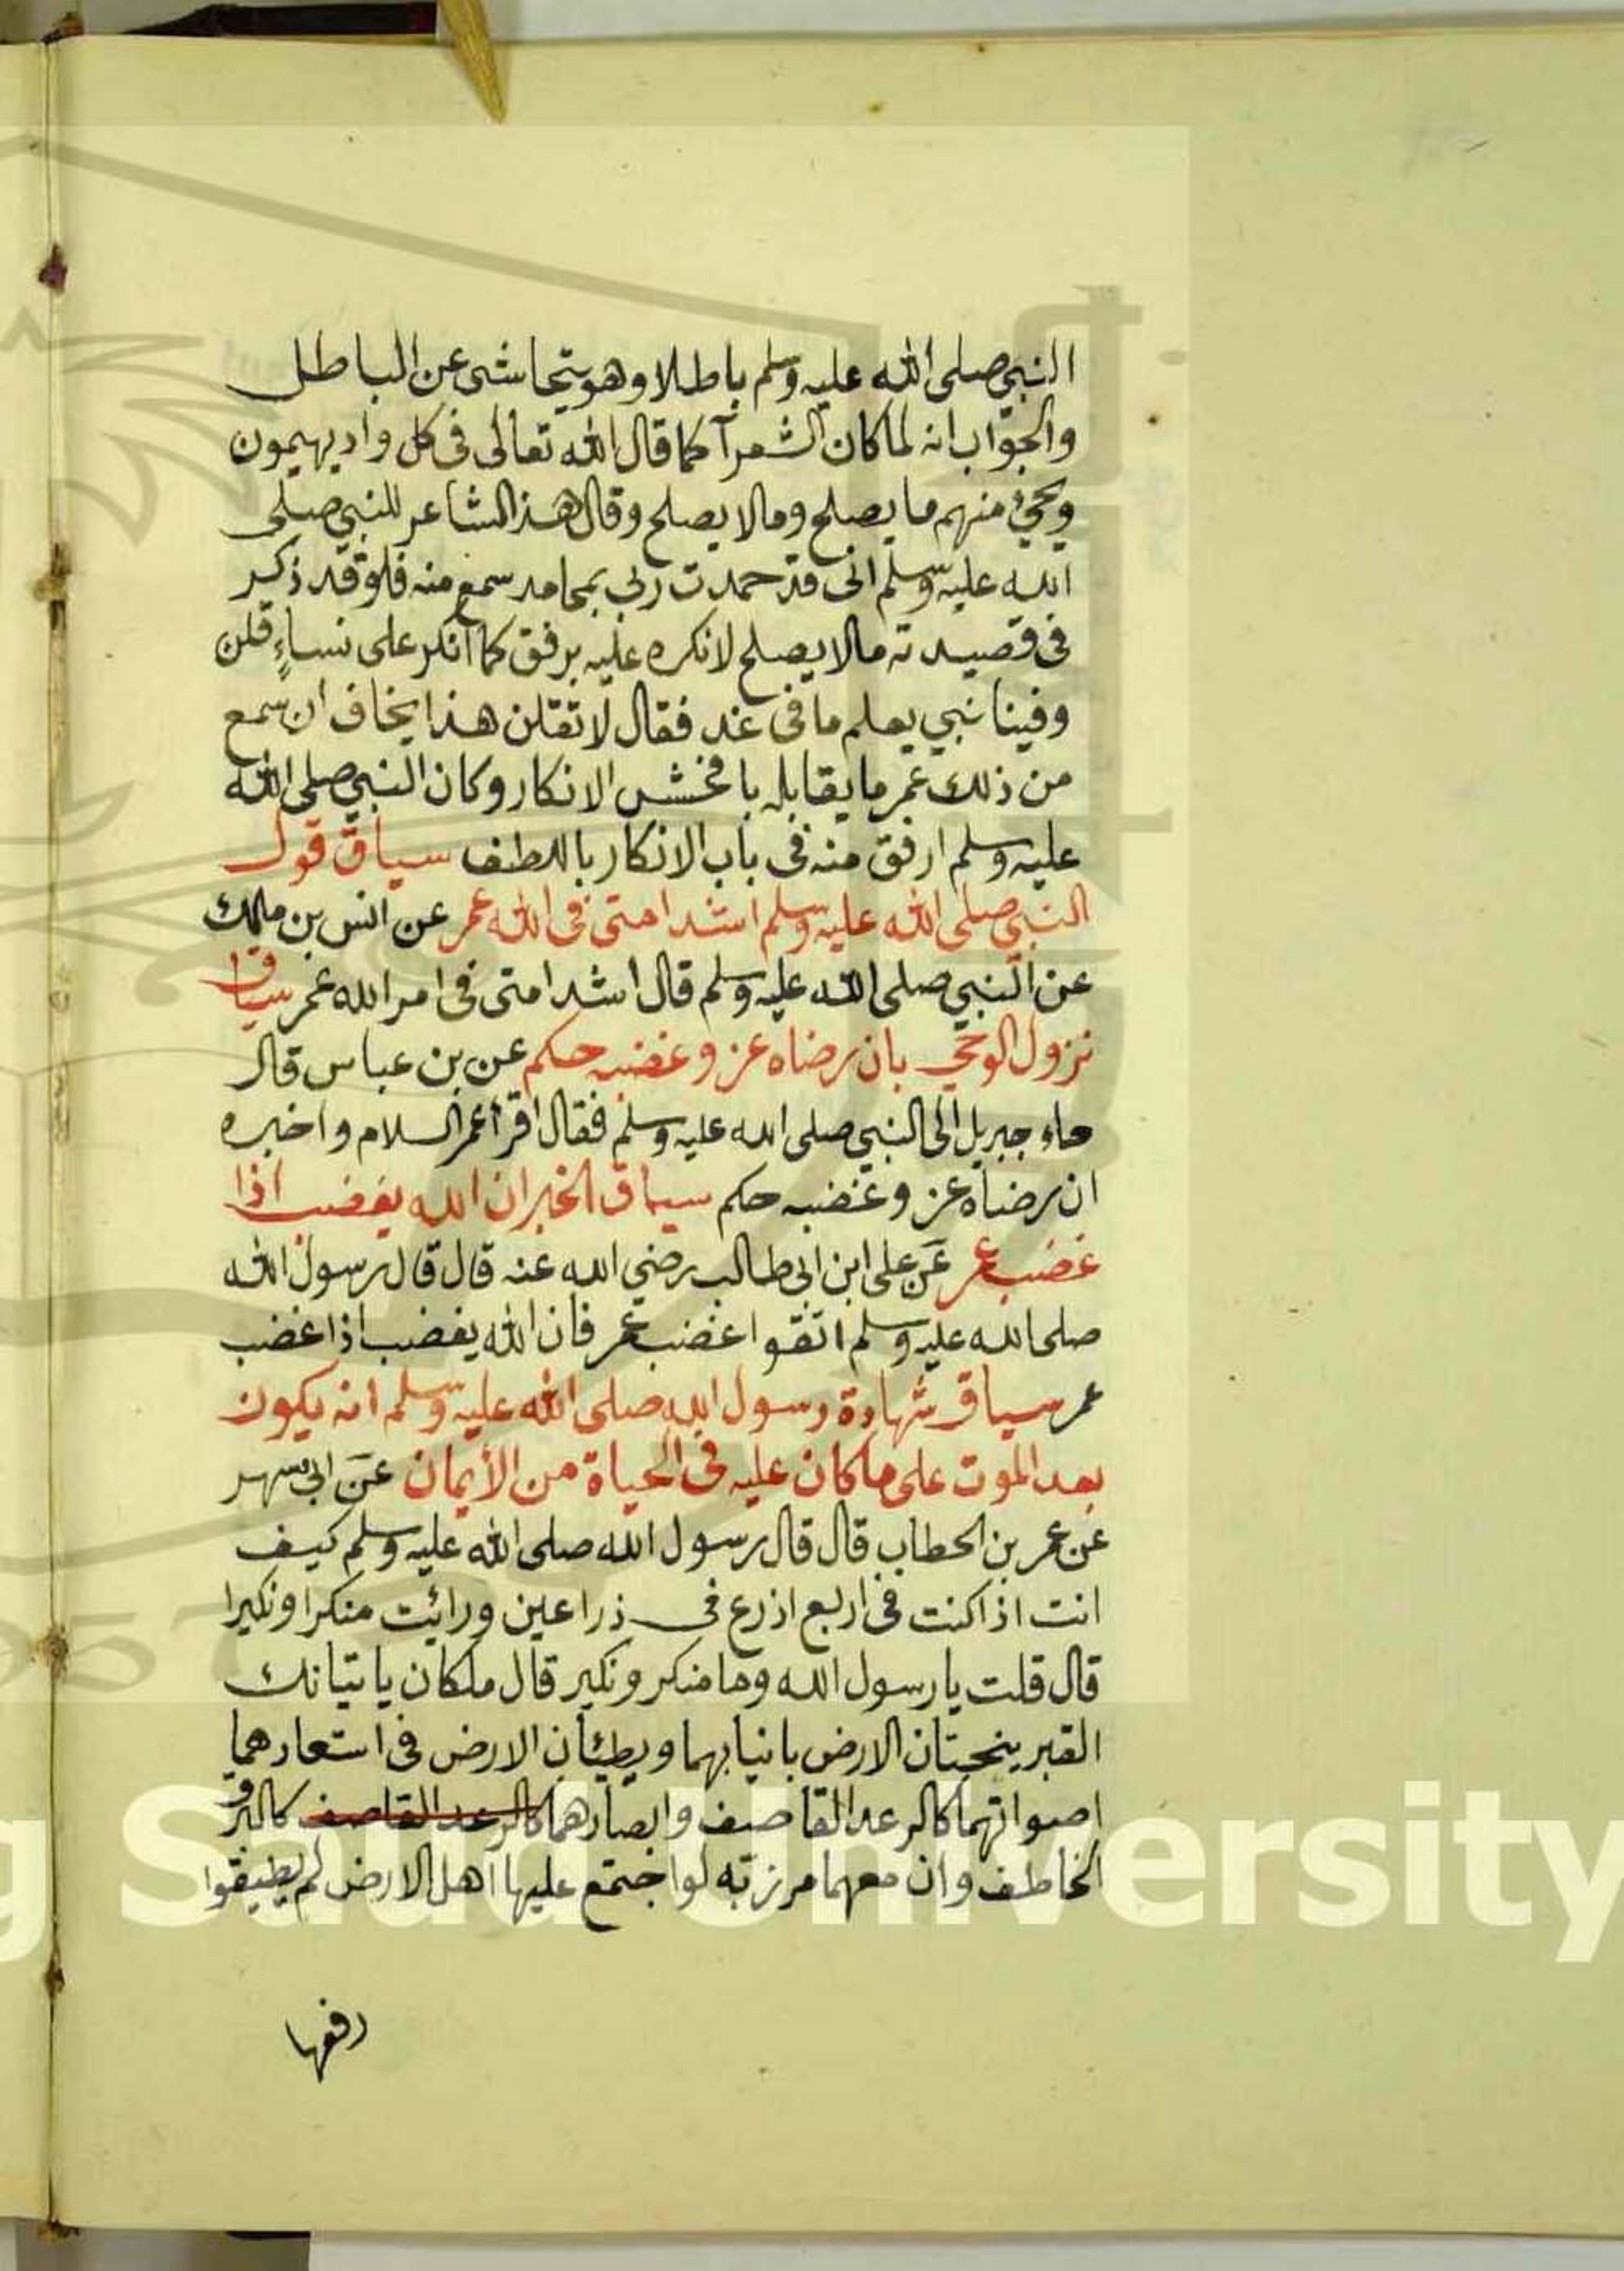 النبي صلى الله عليه وسلم باطلا وهو يتحاشى عن الباطل
والجواب انه لما كان الشعرآ كما قال الله تعالى في كل واد يهيمون
ويجيئ منهم ما يصلح وما لا يصلح وقال هذ الشاعر للنبي صلى
الله عليه وسلم اني قد حمدت ربي بمحامد سمع منه فلو قد ذكر
في قصيدته ما لا يصلح لانكره عليه برفق كما انكر على نساءٍ قلن
وفينا نبي يعلم ما في غد فقال لا تقلن هذا يخاف ان سمع
من ذلك عمر ما يقابله بافخش الانكار وكان النبي صلى الله
عليه وسلم ارفق منه في باب الانكار باللطف سياق قول
النبي صلى الله عليه وسلم اشد امتي في الله عمر عن انس بن مالك
عن النبي صلى الله عليه وسلم قال اشد امتي في امر الله عمر سياق
نزول الوحي بان رضاه عز وغضبه حكم عن بن عباس قال
جاء جبريل الى النبي صلى الله عليه وسلم فقال اقرأ عمر السلام واخبره
ان رضاه عز وغضبه حكم سياق الخبر ان الله يغضب اذا
غضب عمر عن على ابن ابي طالب رضي الله عنه قال قال رسول الله
صلى الله عليه وسلم اتقوا غضب عمر فان الله يغضب اذا غضب
عمر سياق شهادة رسول الله صلى الله عليه وسلم انه يكون
بعد الموت على ما كان عليه في الحياة من الأيمان عن ابي سهر
عن عمر بن الخطاب قال قال رسول الله صلى الله عليه وسلم كيف
انت اذا كنت في اربع اذرع في ذراعين ورائت منكرا ونكيرا
قال قلت يا رسول الله وما منكر ونكير قال ملكان ياتيانك
القبر ينحتان الارض بانيابهما ويطئان الارض في استعارهما
اصواتهما كالرعد القاصف وابصارهما كالرعد القاصف كالبرق
الخاطف وان معهما مرزبه لو اجتمع عليها اهل الارض لم يطيقوا
رفعها
King Saud University